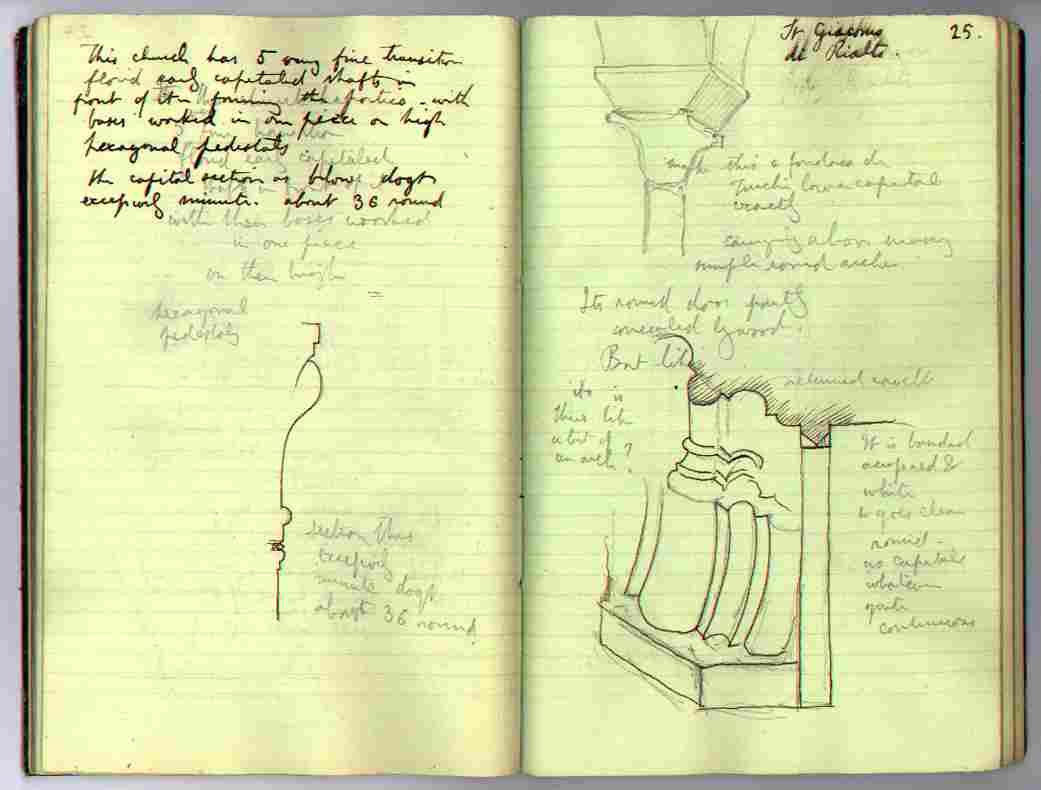 This church has 5 very fine transition
florid early capitaled shafts in
front of it forming the portico - with
bases worked in one piece on high
hexagonal pedestals
the capital section as below dogt
excessively minute. about 36 round
5 fine transition
florid early capitaled
with their bases worked
in one piece
on their high
hexagonal
pedestals
section thus
excessively
minute dogt
about 36 round
25.
St Giacomo
de Rialto.
this a fondaco de
Turchi lower capital
exactly
carrying above
simple round arches.
Its round door partly
concealed by wood.
But like
its is
thus like
a bit of
an arch?
returned
It is banded
& white
& goes clean
round -
no capitals
whatever
quite
continuous